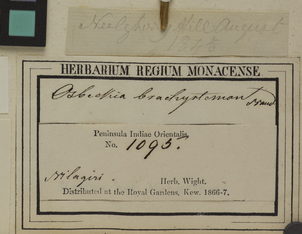 Hill August
HERBARIUM REGIUM MONACENSE
Osbeckia brachystemon Naud
Peninsula Indiae Orientalis
No. 1095.
Nilagiri . Herb. Wight.
Distributed at the Royal Gardens, Kew. 1866-7.